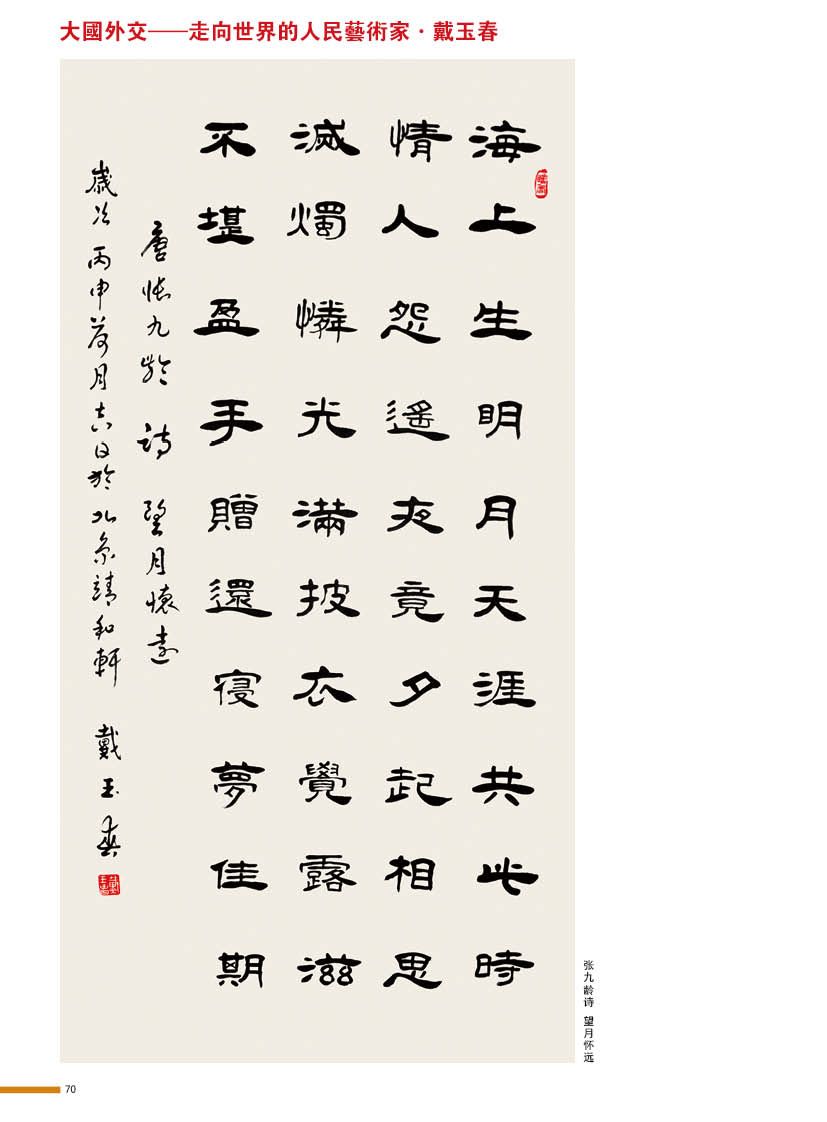 大國外交——走向世界的人民藝術家·戴玉春
海上生明月天涯共此時
情人怨遙夜竟夕起相思
滅燭憐光滿披衣覺露滋
不堪盈手贈還寢夢佳期
唐張九齡詩望月懷遠
歲次丙申荷月吉日於北京靖和軒戴玉春
张九龄诗 望月怀远
70